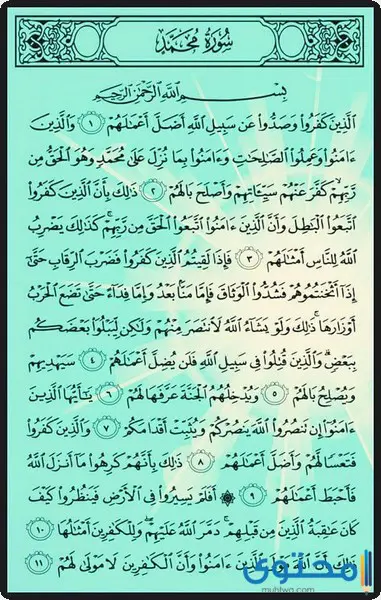 سُورَةُ مُحَمَّدٍ
بِسْمِ اللَّهِ الرَّحْمَٰنِ الرَّحِيمِ
الَّذِينَ كَفَرُوا وَصَدُّوا عَن سَبِيلِ اللَّهِ أَضَلَّ أَعْمَالَهُمْ ١ وَالَّذِينَ
ءَامَنُوا وَعَمِلُوا الصَّالِحَاتِ وَءَامَنُوا بِمَا نُزِّلَ عَلَىٰ مُحَمَّدٍ وَهُوَ الْحَقُّ مِن
رَّبِّهِمْ كَفَّرَ عَنْهُمْ سَيِّئَاتِهِمْ وَأَصْلَحَ بَالَهُمْ ٢ ذَٰلِكَ بِأَنَّ الَّذِينَ كَفَرُوا
اتَّبَعُوا الْبَاطِلَ وَأَنَّ الَّذِينَ ءَامَنُوا اتَّبَعُوا الْحَقَّ مِن رَّبِّهِمْ كَذَٰلِكَ يَضْرِبُ
اللَّهُ لِلنَّاسِ أَمْثَالَهُمْ ٣ فَإِذَا لَقِيتُمُ الَّذِينَ كَفَرُوا فَضَرْبَ الرِّقَابِ حَتَّىٰ
إِذَا أَثْخَنتُمُوهُمْ فَشُدُّوا الْوَثَاقَ فَإِمَّا مَنًّا بَعْدُ وَإِمَّا فِدَاءً حَتَّىٰ تَضَعَ الْحَرْبُ
أَوْزَارَهَا ذَٰلِكَ وَلَوْ يَشَاءُ اللَّهُ لَانتَصَرَ مِنْهُمْ وَلَٰكِن لِّيَبْلُوَا بَعْضَكُم
بِبَعْضٍ وَالَّذِينَ قُتِلُوا فِي سَبِيلِ اللَّهِ فَلَن يُضِلَّ أَعْمَالَهُمْ ٤ سَيَهْدِيهِمْ
وَيُصْلِحُ بَالَهُمْ ٥ وَيُدْخِلُهُمُ الْجَنَّةَ عَرَّفَهَا لَهُمْ ٦ يَا أَيُّهَا الَّذِينَ
ءَامَنُوا إِن تَنصُرُوا اللَّهَ يَنصُرْكُمْ وَيُثَبِّتْ أَقْدَامَكُمْ ٧ وَالَّذِينَ كَفَرُوا
فَتَعْسًا لَّهُمْ وَأَضَلَّ أَعْمَالَهُمْ ٨ ذَٰلِكَ بِأَنَّهُمْ كَرِهُوا مَا أَنزَلَ اللَّهُ
فَأَحْبَطَ أَعْمَالَهُمْ ٩ ۞ أَفَلَمْ يَسِيرُوا فِي الْأَرْضِ فَيَنظُرُوا كَيْفَ
كَانَ عَاقِبَةُ الَّذِينَ مِن قَبْلِهِمْ دَمَّرَ اللَّهُ عَلَيْهِمْ وَلِلْكَافِرِينَ أَمْثَالُهَا ١٠
ذَٰلِكَ بِأَنَّ اللَّهَ مَوْلَى الَّذِينَ ءَامَنُوا وَأَنَّ الْكَافِرِينَ لَا مَوْلَىٰ لَهُمْ ١١
محتوى
muhtwa.com